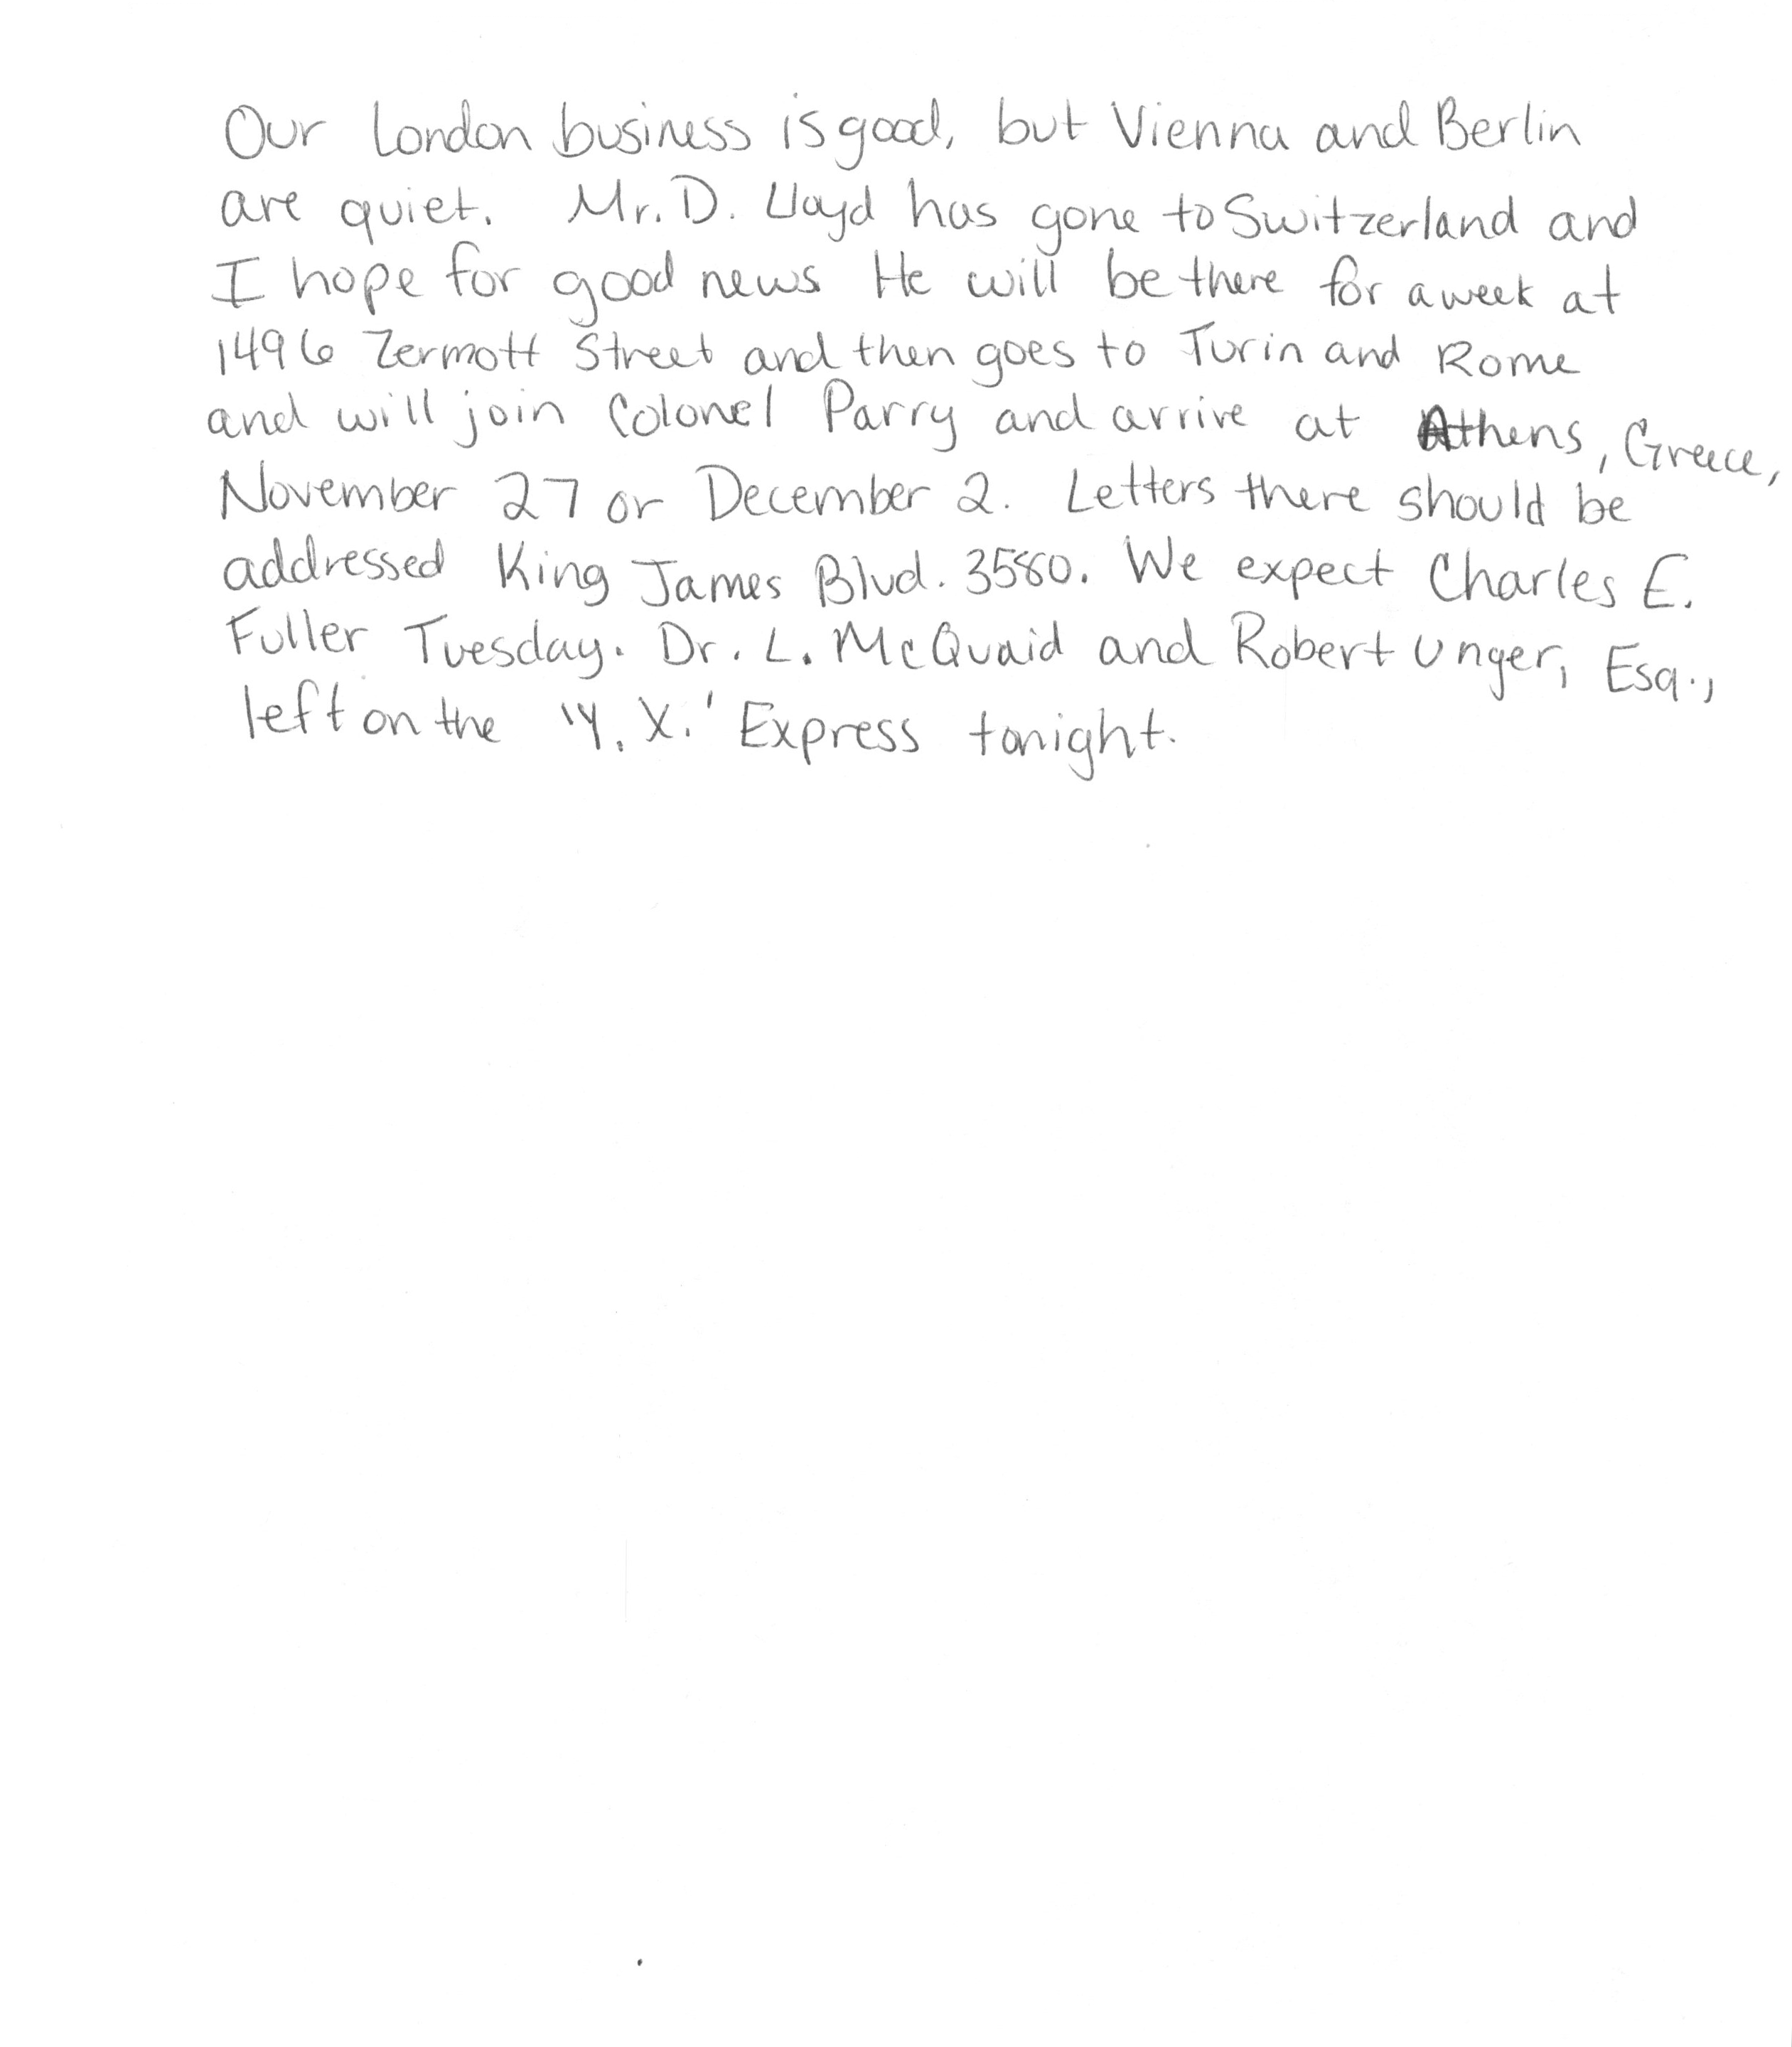 Our London business is good, but Vienna and Berlin
are quiet. Mr. D. Lloyd has gone to Switzerland and
I hope for good news He will be there for a week at
1496 Zermott Street and then goes to Turin and Rome
and will join Colonel Parry and arrive at Athens, Greece,
November 27 or December 2. Letters there should be
addressed King James Blvd. 3580. We expect Charles E.
Fuller Tuesday. Dr. L. McQuaid and Robert Unger, Esq.,
left on the 'Y. X.' Express tonight.